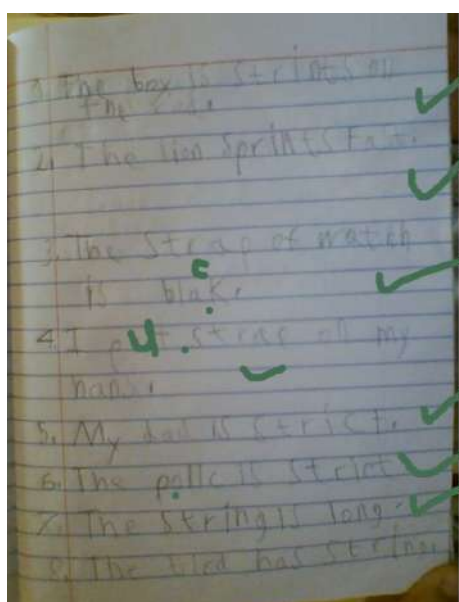 1. The box is strints on
the
2. The lion sprints Fat.
3. The Strap of watch
is blak.
c
4. I put strap on my
hans.
5. My dad is strict.
6. The polic is strict
7. The string is long.
8. The has string.